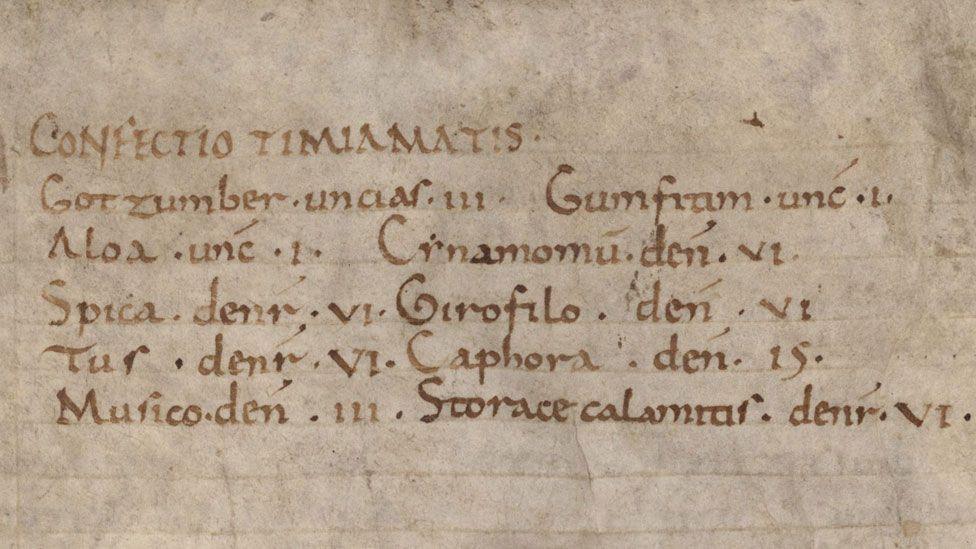 CONFECTIO TIMIAMATIS·
Gotzumber·uncias·III· Gumfitim·unc̄·I·
Aloa·unc̄·I· Cinamomū·den̄·VI·
Spica·denr̄·VI· Girofilo·den̄·VI
Tus·denr̄·VI· Caphora·den̄·IS·
Musico·den̄·III· Storace calamitis·denr̄·VI·